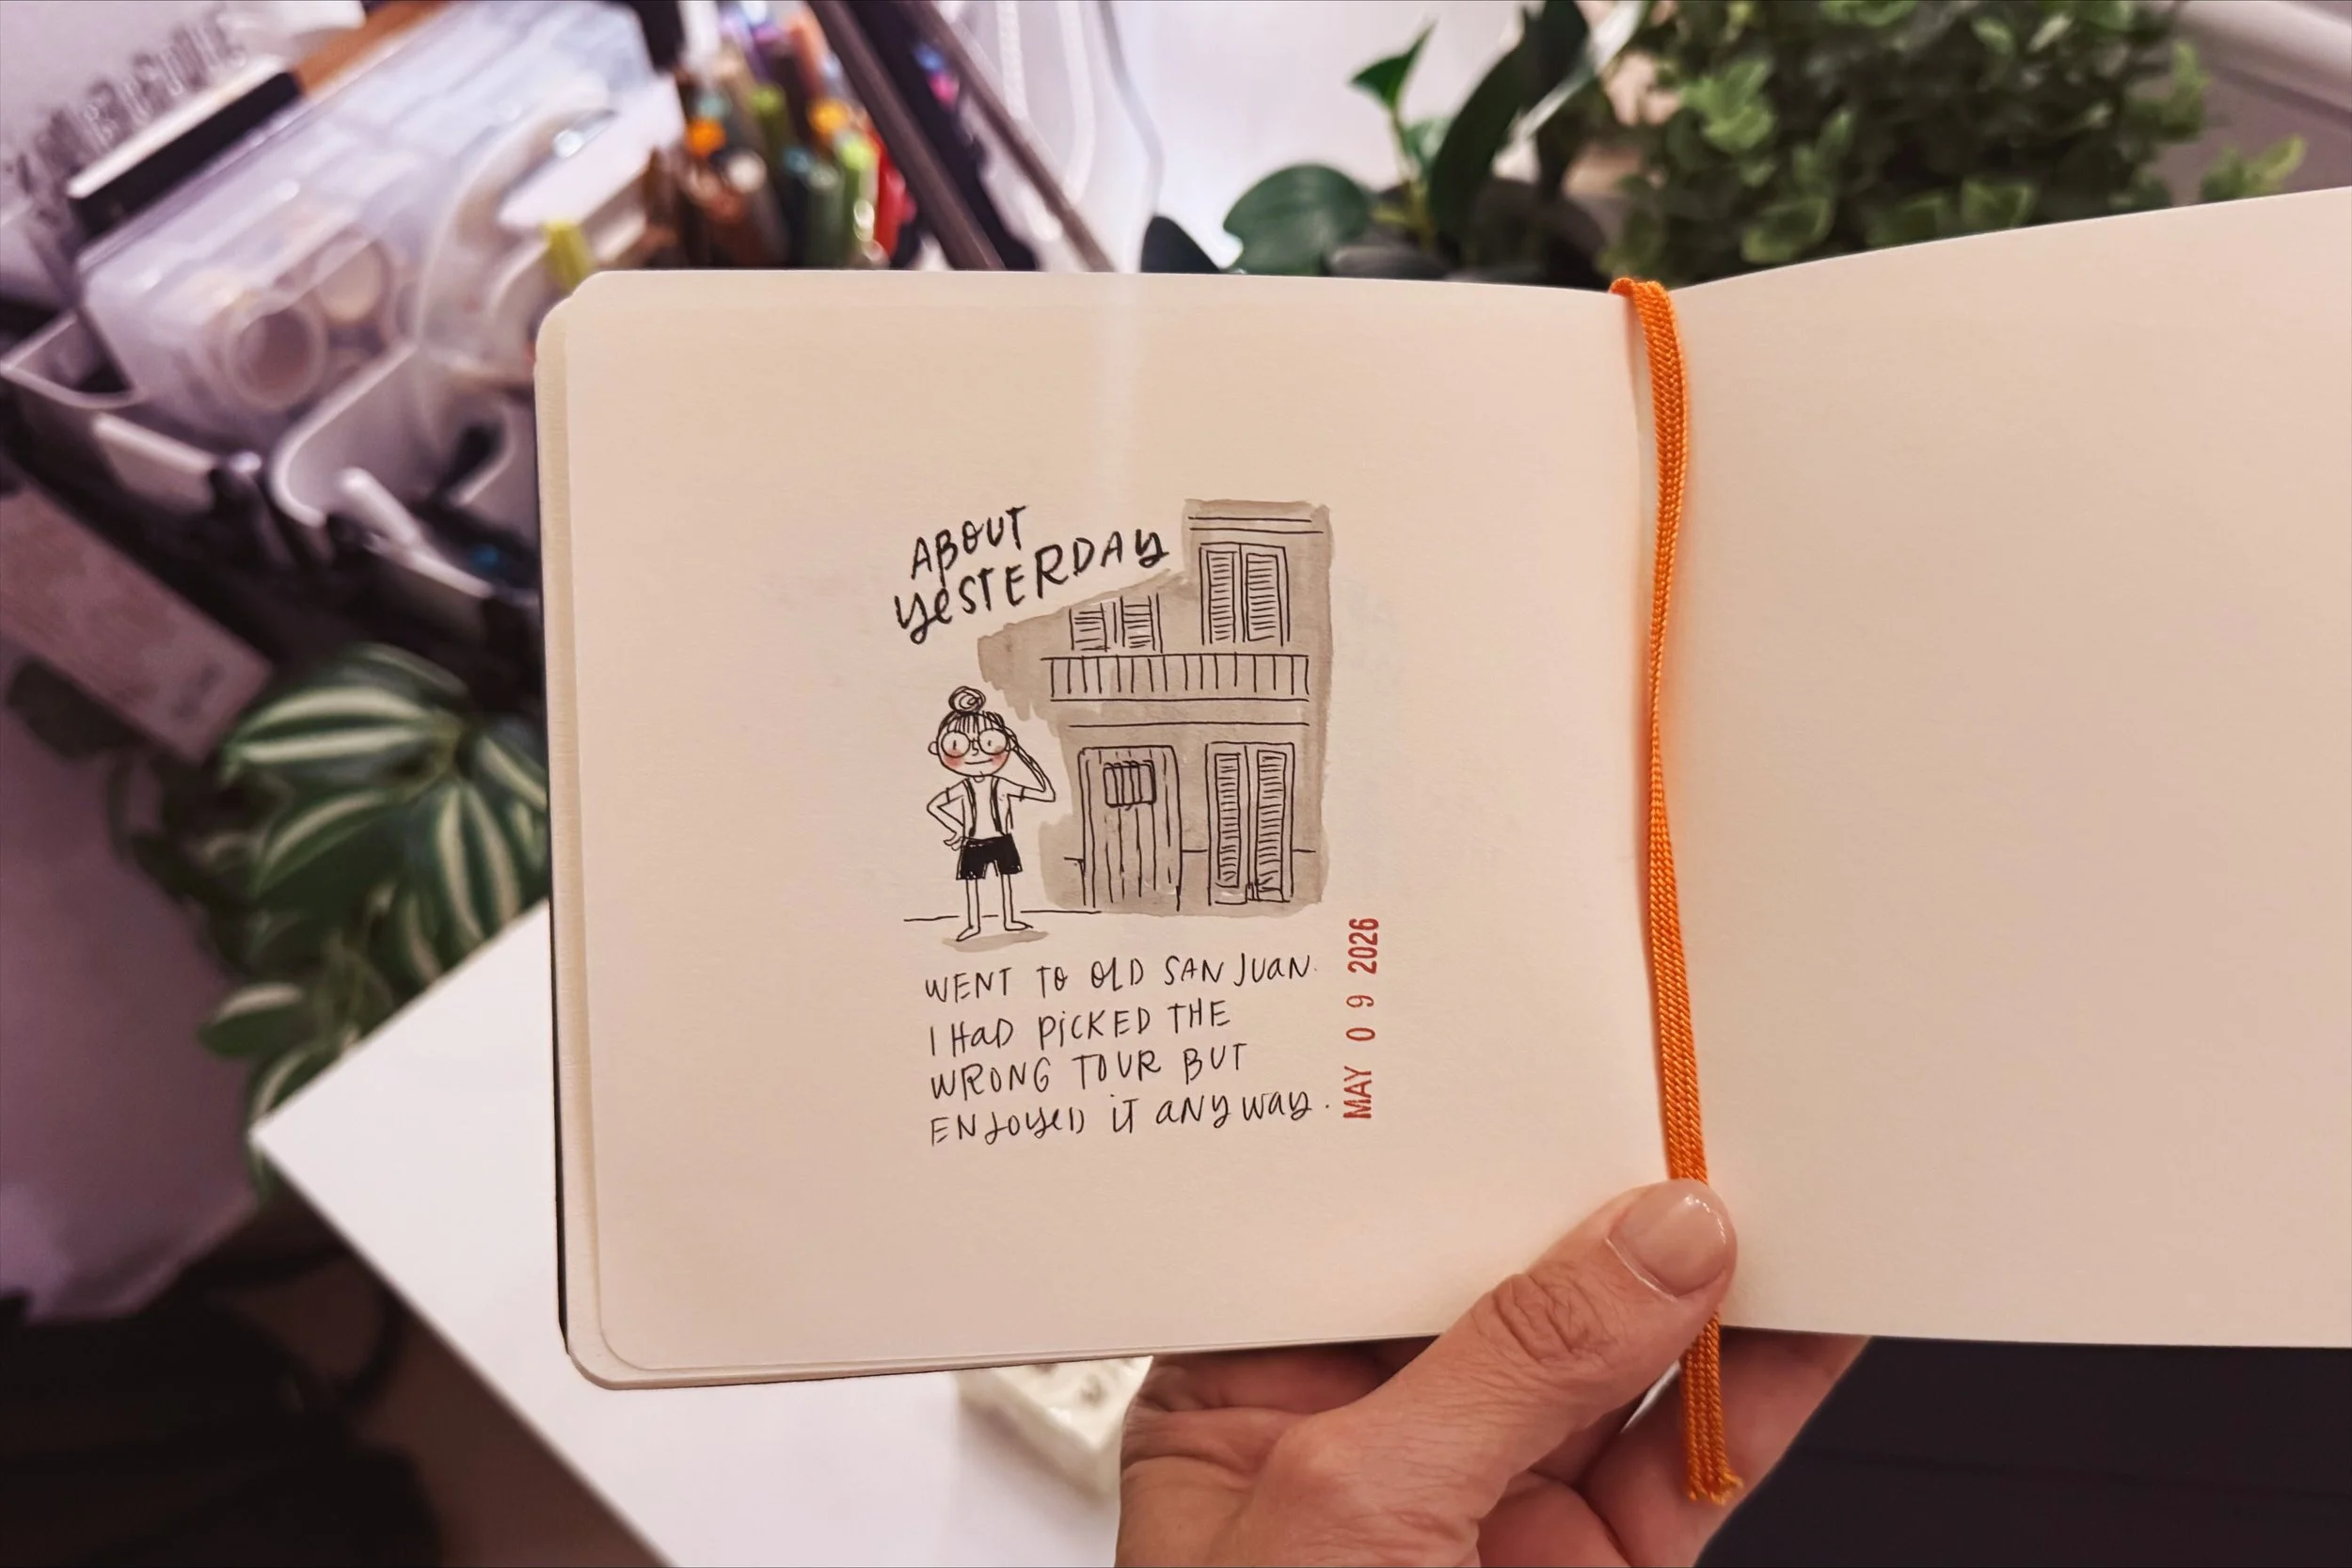 ABOUT
YESTERDAY
WENT TO OLD SAN JUAN.
I HAD PICKED THE
WRONG TOUR BUT
ENJOYED IT ANYWAY.
MAY 09 2026